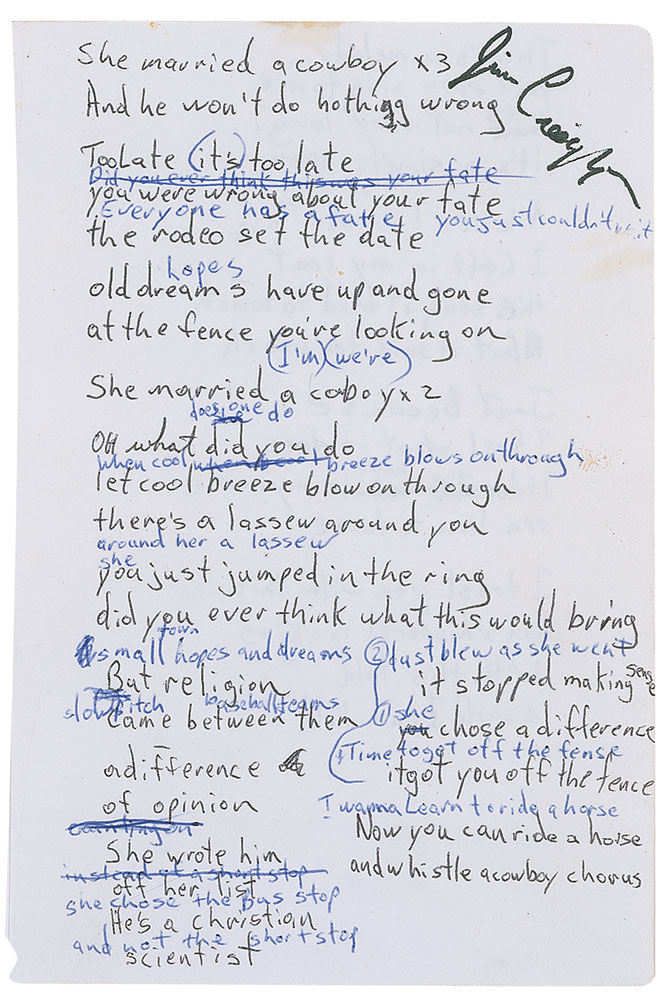 She married a cowboy x3
And he won't do nothing wrong
Too Late (it's) too late
Did you ever think this was your fate
you were wrong about your fate
Everyone has a fate you just couldn't wait
the rodeo set the date
hopes
old dreams have up and gone
at the fence you're looking on
(I'm) (we're)
She married a coboy x2
does one do
OH what did you do
when cool when cool breeze blows on through
let cool breeze blow on through
there's a lassew around you
around her a lassew
she
you just jumped in the ring
did you ever think what this would bring
town
small hopes and dreams
But religion
slow pitch baseball teams
Came between them
a difference
of opinion
counting on
She wrote him
instead of a short stop
off her list
she chose the bus stop
He's a christian
and not the short stop
scientist
② dust blew as she went
it stopped making sense
① she
you chose a difference
Time to get off the fense
it got you off the fence
I wanna Learn to ride a horse
Now you can ride a horse
and whistle a cowboy chorus